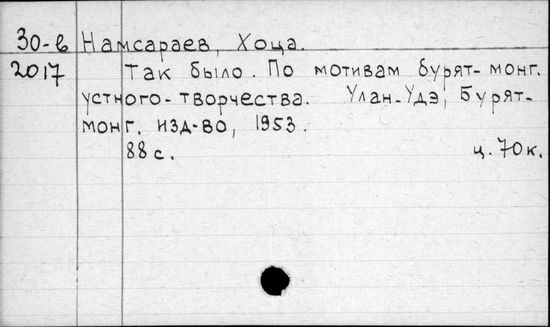 30-в Намсараев, Хоца.
2017 Так было. По мотивам бурят-монг.
устного-творчества. Улан-Удэ, Бурят-
монг. изд-во, 1953.
88 с. ц. 70к.